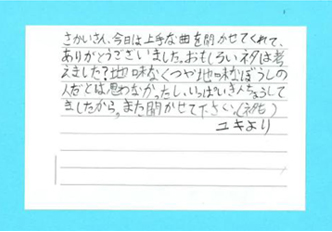 さかいさん、今日は上手な曲を聞かせてくれて、
ありがとうございました。おもしろいネタは考
えました？地味なくつや地味なぼうしの
人だとは思わなかったし、いっぱい
ましたから、また聞かせて下さい。(ネタも)
ユキより